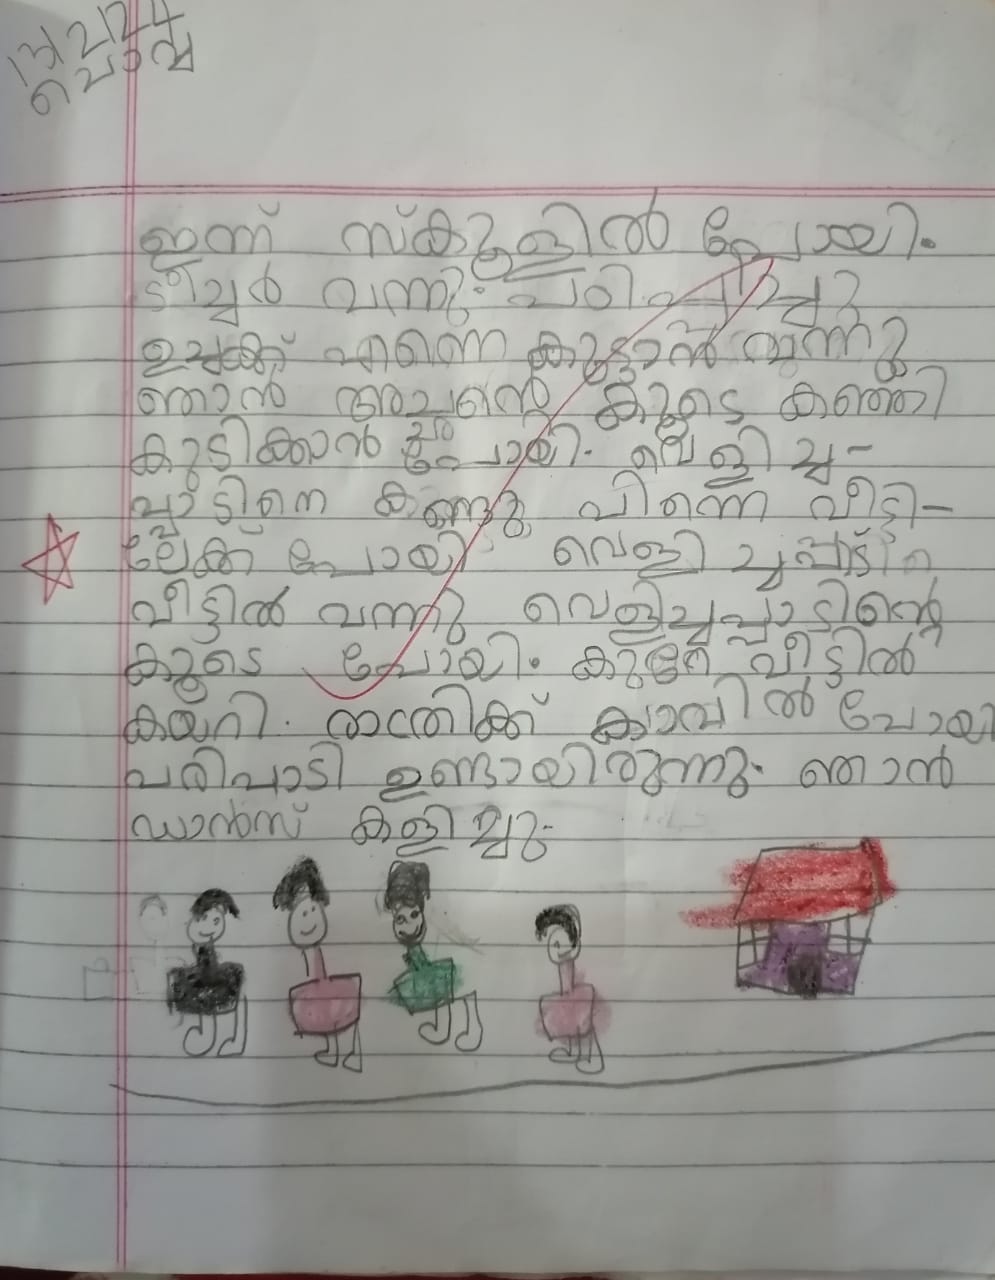 13/2/24
ചൊവ്വ
ഇന്ന് സ്കൂളിൽ പോയി.
ടീച്ചർ വന്നു. പഠിപ്പിച്ചു
ഉച്ചക്ക് എന്നെ കൂട്ടാൻ വന്നു
ഞാൻ അച്ഛന്റെ കൂടെ കഞ്ഞി
കുടിക്കാൻ പോയി. വെളിച്ച-
പ്പാടിനെ കണ്ടു പിന്നെ വീട്ടി-
ലേക്ക് പോയി വെളിച്ചപ്പാട്
വീട്ടിൽ വന്നു വെളിച്ചപ്പാടിന്റെ
കൂടെ പോയി. കുറേ വീട്ടിൽ
കയറി. രാത്രിക്ക് കാവിൽ പോയി
പരിപാടി ഉണ്ടായിരുന്നു. ഞാൻ
ഡാൻസ് കളിച്ചു.